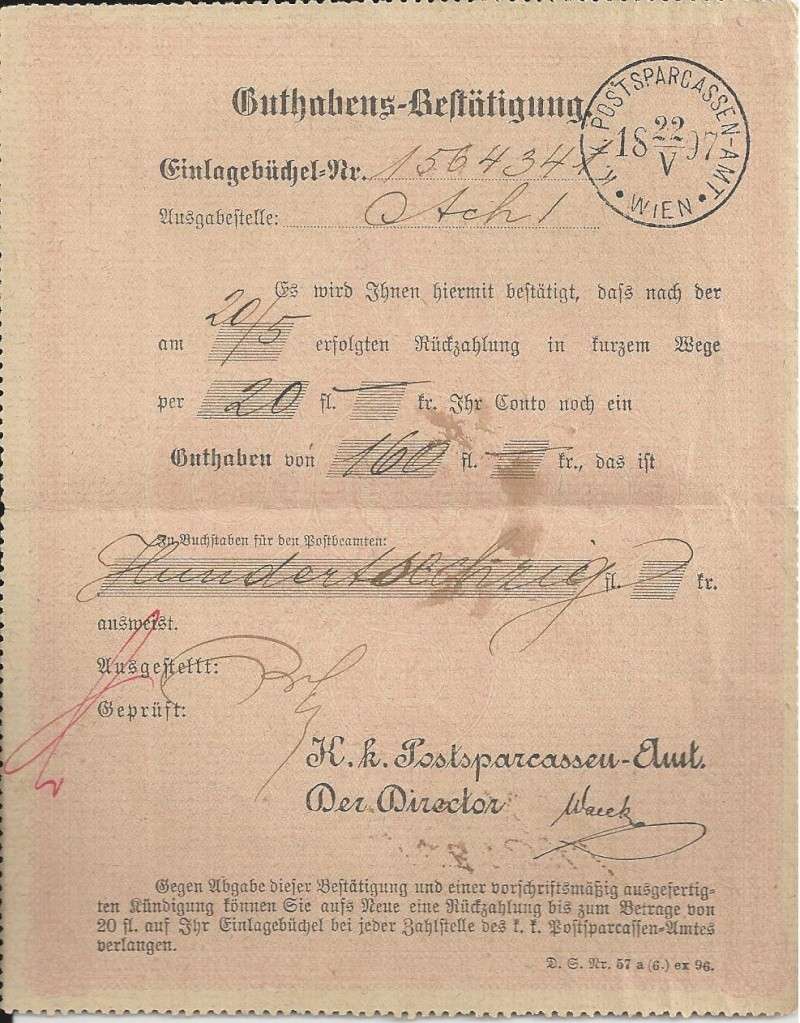 Guthabens-Bestätigung
K. K. POSTSPARCASSEN-AMT
18 22/V 97
WIEN
Einlagebüchel-Nr. 1564341
Ausgabestelle: Ach 1
Es wird Ihnen hiermit bestätigt, dass nach der
am 20/5 erfolgten Rückzahlung in kurzem Wege
per 20 fl. — kr. Ihr Conto noch ein
Guthaben von 160 fl. — kr., das ist
In Buchstaben für den Postbeamten:
Hundertsechzig fl. kr.
ausweist.
Ausgestellt:
Geprüft:
K. k. Postsparcassen-Amt.
Der Director
Gegen Abgabe dieser Bestätigung und einer vorschriftsmäßig ausgefertig-
ten Kündigung können Sie aufs Neue eine Rückzahlung bis zum Betrage von
20 fl. auf Ihr Einlagebüchel bei jeder Zahlstelle des k. k. Postsparcassen-Amtes
verlangen.
D. S. Nr. 57 a (6.) ex 96.